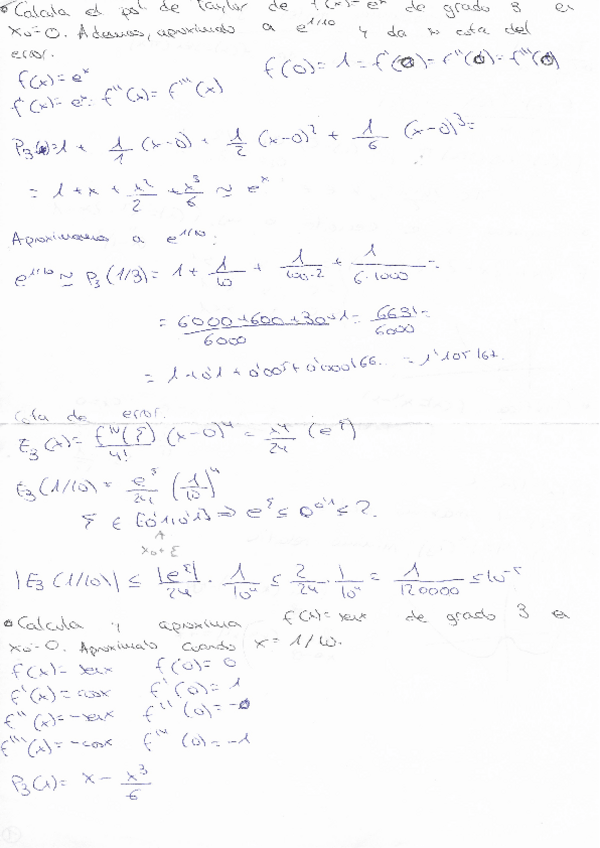 • Calcula el pol. de Taylor de f(x)=eˣ de grado 3 en
x₀=0. Además, aproximado a e^(1/10) y da una cota del
error.
f(x)=eˣ
f(0)=1=f'(0)=f''(0)=f'''(0)
f'(x)=eˣ=f''(x)=f'''(x)
P₃(x)=1+ 1/1 (x-0)+ 1/2 (x-0)² + 1/6 (x-0)³=
= 1+x+ x²/2 + x³/6 ≃ eˣ
Aproximamos a e^(1/10):
e^(1/10) ≃ P₃(1/3)= 1+ 1/10 + 1/(100·2) + 1/(6·1000) =
= (6000+600+30+1)/6000 = 6631/6000 =
= 1+0'1+0'005+0'000166.. = 1'105167.
Cota de error.
E₃(x)= f^IV(ξ)/4! (x-0)⁴ = x⁴/24 (e^ξ)
E₃(1/10)= e^ξ/24 (1/10)⁴
ξ ∈ [0'1,0'1] ⇒ e^ξ ≤ e^0'1 ≤ 2.
x₀+ξ
|E₃(1/10)| ≤ |e^ξ|/24 · 1/10⁴ ≤ 2/24 · 1/10⁴ = 1/120000 ≤ 10⁻⁵
• Calcula y aproxima f(x)=senx de grado 3 en
x₀=0. Aproximalo cuando x=1/10.
f(x)=senx f(0)=0
f'(x)=cosx f'(0)=1
f''(x)=-senx f''(0)=-0
f'''(x)=-cosx f'''(0)=-1
P₃(x)= x- x³/6